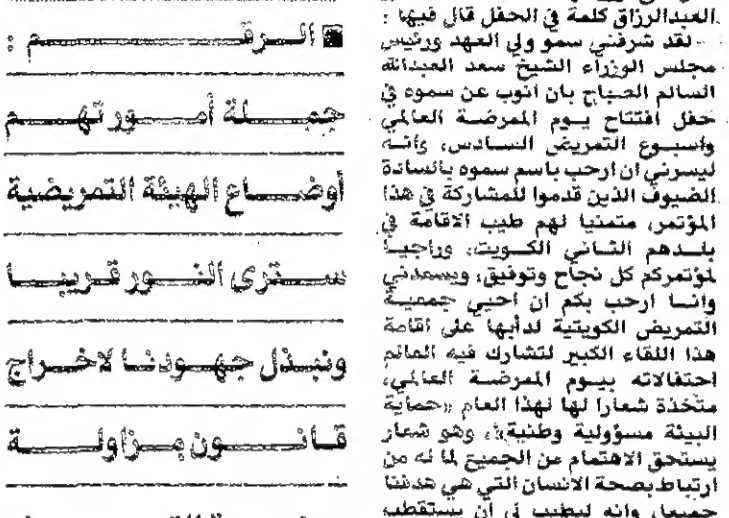 العبدالرزاق كلمة في الحفل قال فيها :
لقد شرفني سمو ولي العهد ورئيس
مجلس الوزراء الشيخ سعد العبدالله
السالم الصباح بان انوب عن سموه في
حفل افتتاح يوم الممرضة العالمي
واسبوع التمريض السادس، وانه
ليسرني ان ارحب باسم سموه بالسادة
الضيوف الذين قدموا للمشاركة في هذا
المؤتمر، متمنيا لهم طيب الاقامة في
بلدهم الثاني الكويت، وراجيا
لمؤتمركم كل نجاح وتوفيق، ويسعدني
وانا ارحب بكم ان احيي جمعية
التمريض الكويتية لدأبها على اقامة
هذا اللقاء الكبير لتشارك فيه العالم
احتفالاته بيوم الممرضة العالمي،
متخذة شعارا لها لهذا العام «حماية
البيئة مسؤولية وطنية»، وهو شعار
يستحق الاهتمام من الجميع لما له من
ارتباط بصحة الانسان التي هي هدفنا
جميعا، وانه ليطيب لي أن يستقطب
■ الرقم :
جملة أمور تهم
أوضاع الهيئة التمريضية
سترى النور قريبا
ونبذل جهودنا لاخراج
قانون مزاولة